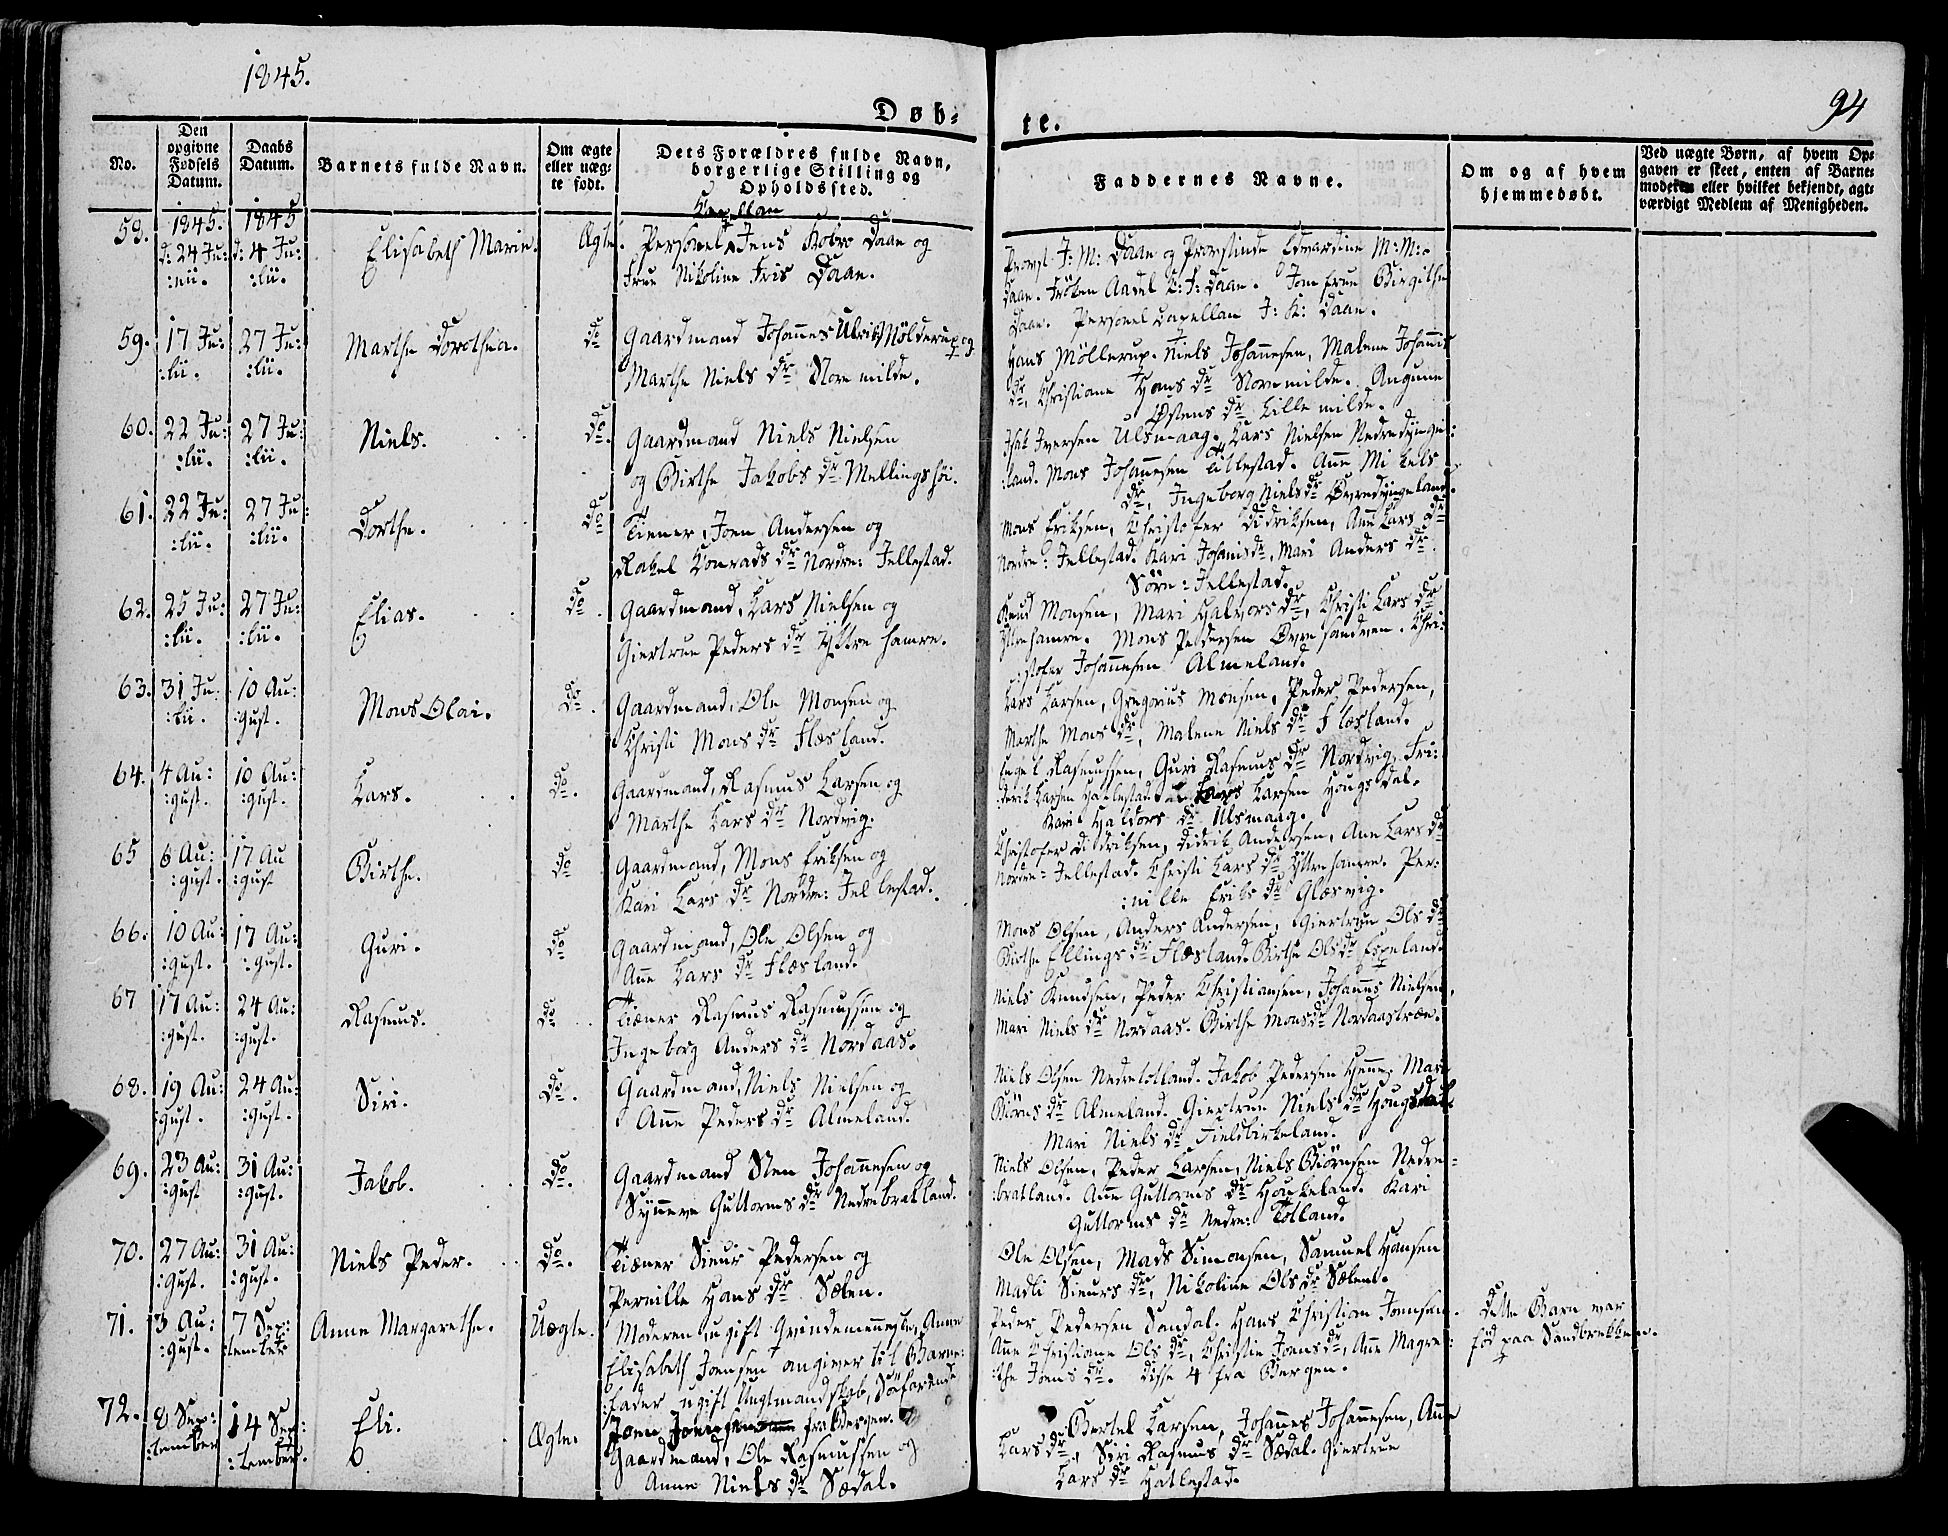 1845.
94
Døb-
te.
No.
Den opgivne Fødsels Datum.
Daabs Datum.
Barnets fulde Navn.
Om ægte eller uæg-
te født.
Dets Forældres fulde Navn,
borgerlige Stilling og
Opholdssted.
Faddernes Navne.
Om og af hvem
hjemmedøbt.
Ved uægte Børn, af hvem Op-
gaven er skeet, enten af Barne-
moderen eller hvilket bekjendt, agt-
værdigt Medlem af Menigheden.
1845. 1845
d: 24 Ju: d: 4 Ju:
:nii. :lii.
Elisabeth Marie.
Ægte.
Kapellan
Personel Jens Daae og
Frue Nikoline Friis Daae.
Provst J: M: Daae og Provstinde Edvardine M: M:
Daae. Frøken J: Daae. Jomfrue Birgithe
Daae. Personel Capellan J: K: Daae.
59. 17 Ju: 27 Ju:
:lii. :lii.
Marthe Dorothea.
do
Gaardmand Johannes Ulrik Möllerup og
Marthe Niels dr Store milde.
Hans Möllerup. Niels Johannesen, Malene Johannis
dr, Christiane Hans dr Store milde.
Östens dr Lille milde.
60. 22 Ju: 27 Ju:
:lii. :lii.
Niels.
do.
Gaardmand Niels Nielsen
og Birthe Jakobs dr Mellingshöi.
Isak Iversen Ulsmaag. Lars Nielsen
:land. Mons Johannesen Tillestad. Anne Mikels
dr, Ingeborg Niels dr
61. 22 Ju: 27 Ju:
:lii. :lii.
Dorthe.
do
Tiener, Joen Andersen og
Rakel Konrads dr Nordre: Jellestad.
Mons Eriksen, Christofer Didriksen, Anne Lars dr
Nordre: Jellestad. Kari Johanis dr, Mari Anders dr
Söre: Jellestad.
62. 25 Ju: 27 Ju:
:lii. :lii.
Elias.
do.
Gaardmand, Lars Nielsen og
Giertrue Peders dr Yttre hamre.
Knud Monsen, Mari Halvors dr, Christi Lars dr
Yttrehamre. Mons Pedersen Övre sandven. Chri:
:stofer Johannesen Almeland.
63. 31 Ju: 10 Au:
:lii. :gust.
Mons Olai.
do.
Gaardmand, Ole Monsen og
Christi Mons dr Flæsland.
Lars Larsen, Gregorius Monsen, Peder Pedersen,
Marthe Mons dr, Malene Niels dr Flæsland.
64. 4 Au: 10 Au:
:gust. :gust.
Lars.
do.
Gaardmand, Rasmus Larsen og
Marthe Lars dr Nordvig.
Engel Rasmussen, Guri Rasmus dr Nordvig. Fri:
:derik Larsen Hatlestad. Lars Larsen Hougsdal.
Kari Haldors dr Ulsmaag.
65 6 Au: 17 Au
:gust. :gust
Birthe.
do
Gaardmand, Mons Eriksen og
Kari Lars dr Nordre: Jellestad.
Christofer Didriksen, Didrik Andersen, Ane Lars dr
Nordre= Jellestad. Christi Lars dr Yttre hamre. Per:
:nille Eriks dr Glæsvig.
66. 10 Au: 17 Au:
:gust. :gust.
Guri.
do
Gaardmand, Ole Olsen og
Anne Lars dr Flæsland.
Mons Olsen, Anders Andersen, Giertrue Ols dr
Birthe Ellings dr Flæsland. Birthe Ols dr Espeland.
67 17 Au: 24 Au:
:gust. :gust.
Rasmus.
do
Tiæner Rasmus Rasmussen og
Ingeborg Anders dr Nordaas.
Niels Knudsen, Peder Christiansen, Johannes Nielsen,
Mari Niels dr Nordaas. Birthe Mons dr Nordaastræe.
68. 19 Au: 24 Au:
:gust. :gust.
Siri.
do.
Gaardmand, Niels Nielsen og
Anne Peders dr Almeland.
Niels Olsen Nedretotland. Jakob Pedersen Mari
Biörns dr Almeland. Giertrue Niels dr Hougsdal.
Mari Niels dr Fieldbirkeland.
69. 23 Au: 31 Au:
:gust :gust.
Jakob.
do.
Gaardmand Sten Johannesen og
Synneve Guttorms dr Nedrebratland.
Niels Olsen, Peder Larsen, Niels Biörnsen Nedre=
:bratland. Anne Guttorms dr Houkeland. Kari
Guttorms dr Nedre: Totland.
70. 27 Au: 31 Au:
:gust. :gust.
Niels Peder.
do.
Tiæner Sieur Pedersen og
Pernille Hans dr Sælen.
Ole Olsen, Mads Simonsen, Samuel Hansen
Madli Sieurs dr, Nikoline Ols dr Sælen.
71. 3 Au: 7 Sep:
:gust. :tember
Anne Margarethe.
Uægte.
Moderen ugift Qvindemenneske, Anne
Elisabeth Joensen angiver til Barne:
:fader ugift Ungtmandskab, Söfarende
Joen fra Bergen.
Peder Pedersen Sandal. Hans Christian Joensen.
Ane Christiane Ols dr, Christie Joens dr, Ane Magre:
:the Joens dr. Disse 4 fra Bergen.
Dette Barn var
fød paa Sandbrekken.
72. 8 Sep: 14 Sep:
:tember :tember.
Eli.
Ægte.
Gaardmand, Ole Rasmussen og
Anne Niels dr Sædal.
Bertel Larsen, Johannes Johannesen, Anne
Lars dr, Siri Rasmus dr Sædal. Giertrue
Lars dr Hatlestad.